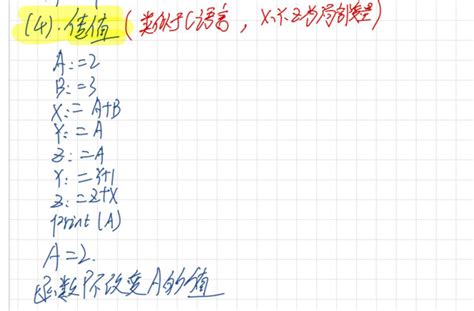 (4).传值(类似于C语言,X、Y、Z为局部变量)
A:=2
B:=3
X:=A+B
Y:=A
Z:=A
Y:=Y+1
Z:=Z+X
print(A)
A=2.
函数P不改变A的值